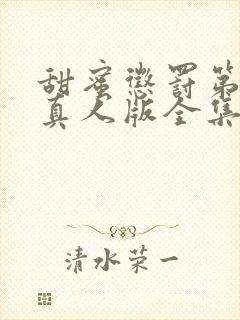 甜蜜惩罚第
真人版全集
清水荣一